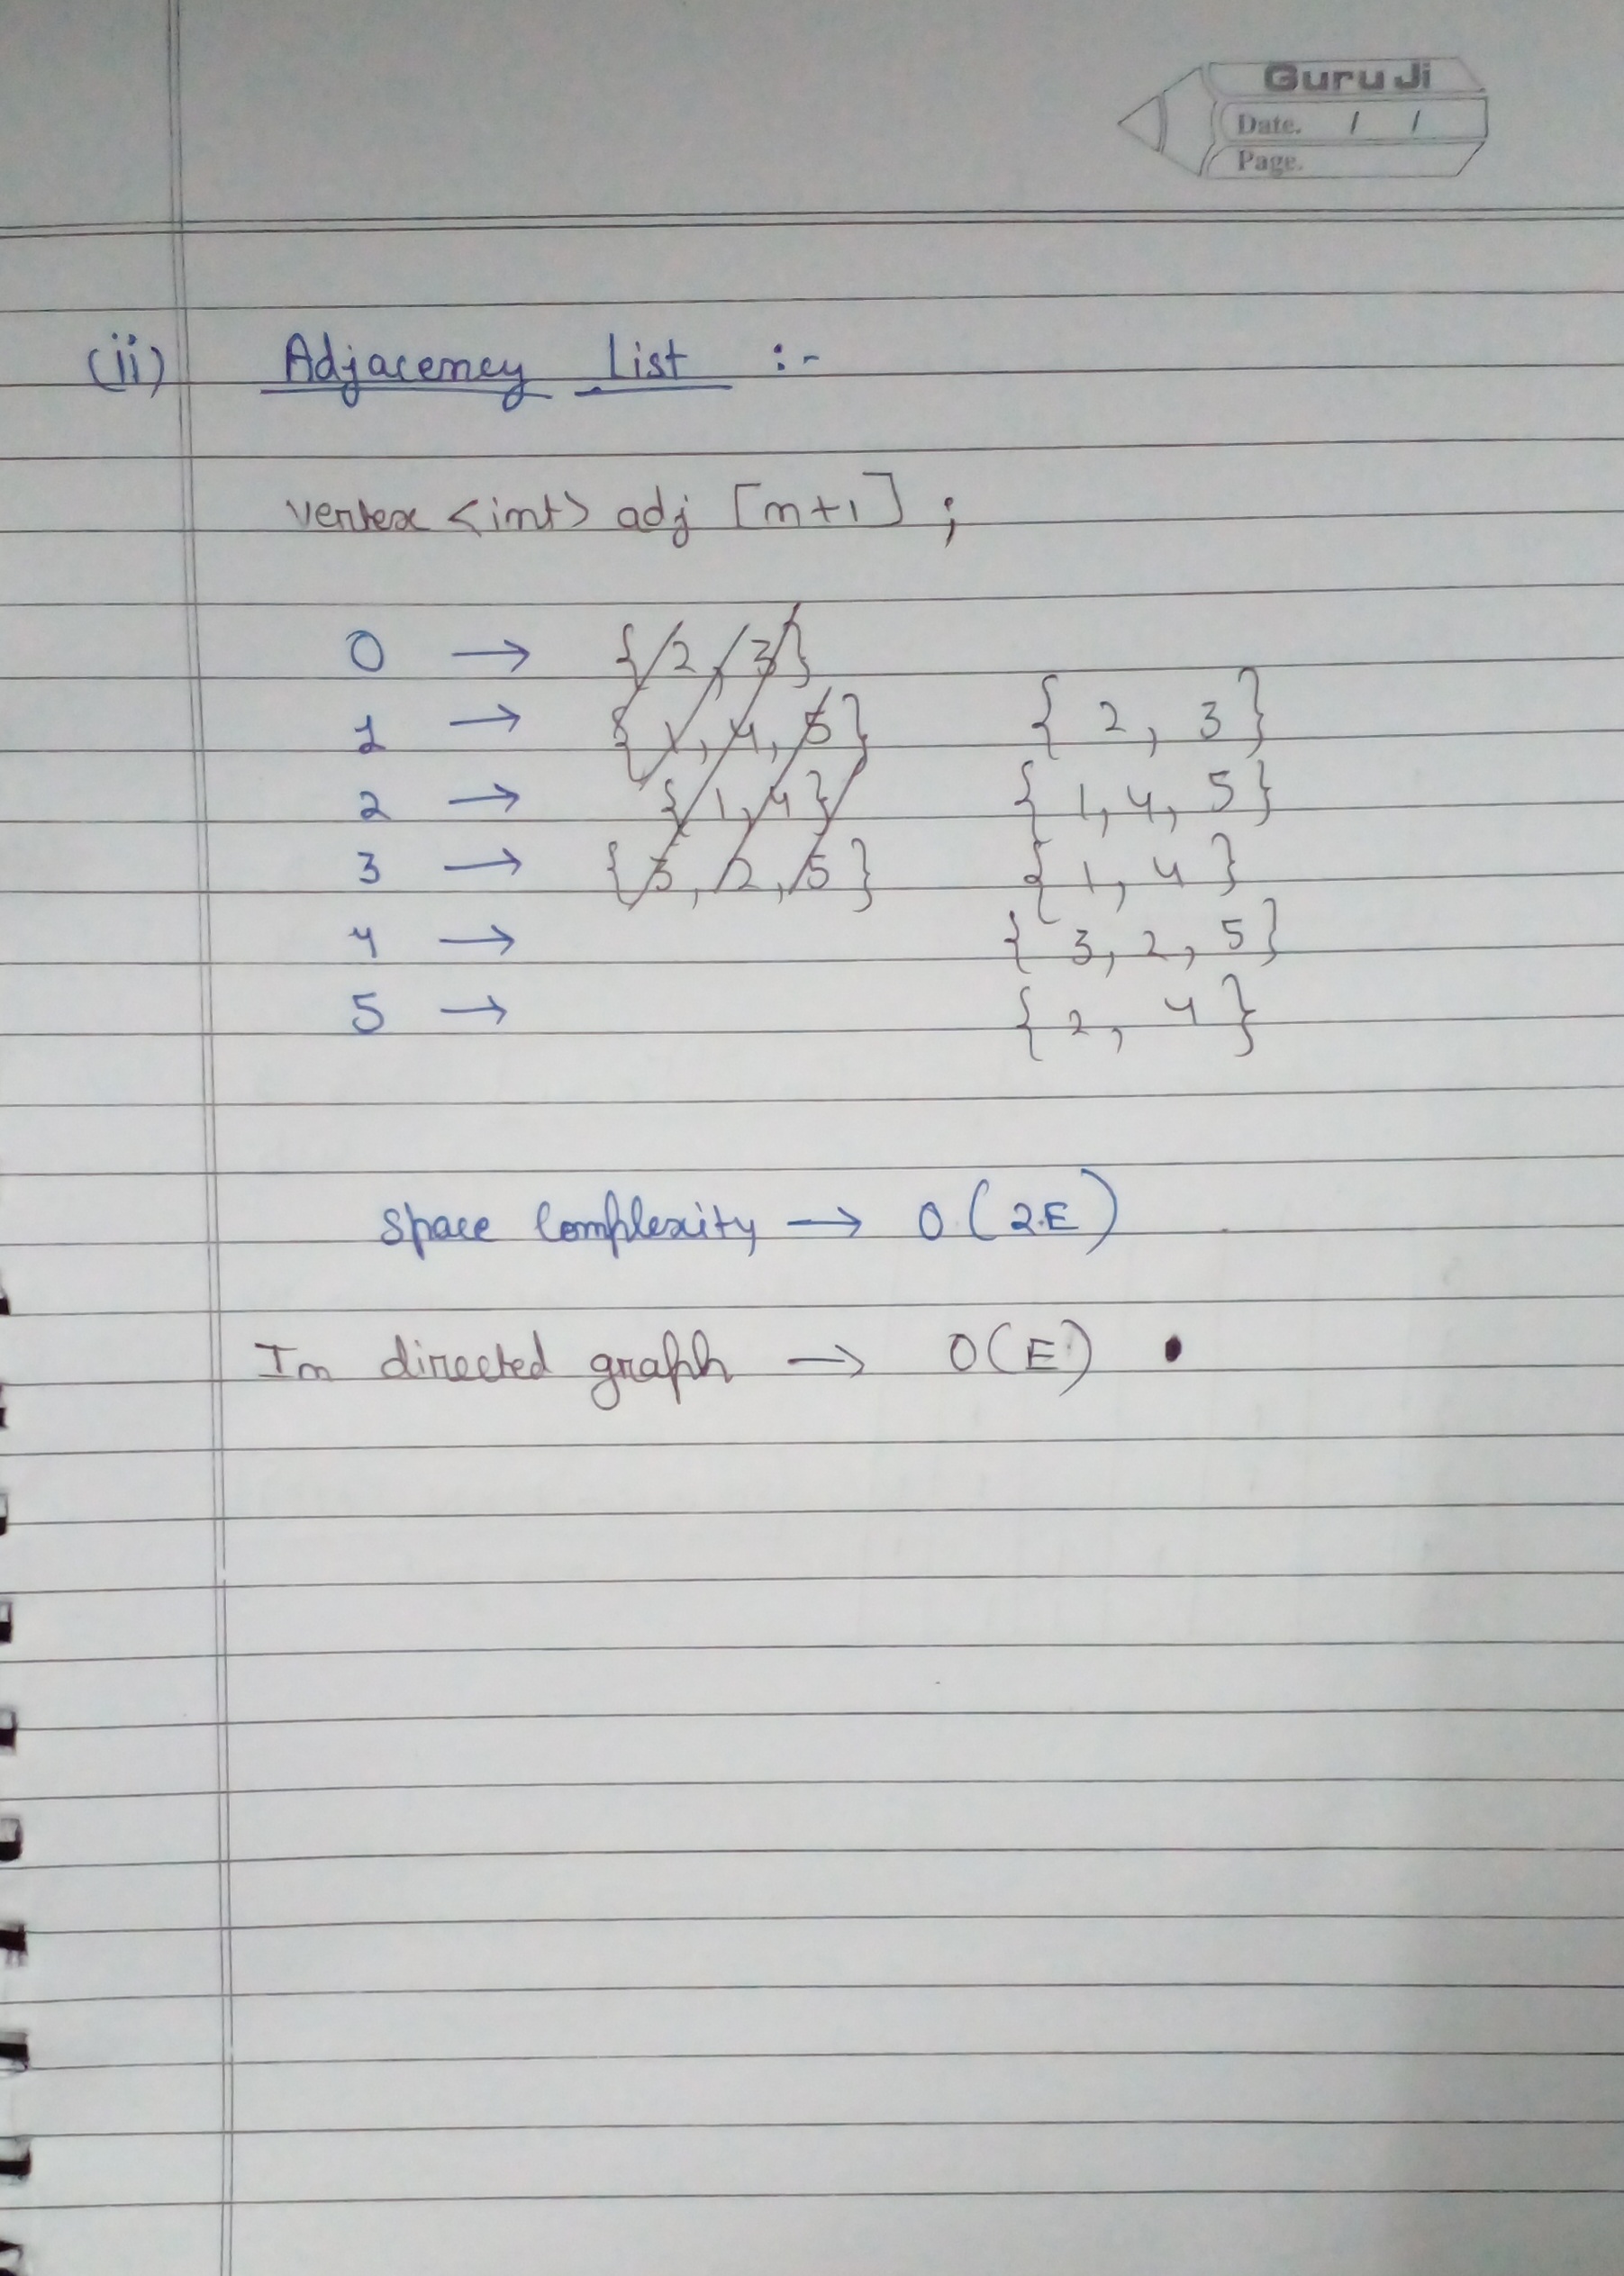 Guru Ji
Date. / /
Page.
(ii) Adjacency List :-
vertex <int> adj [n+1] ;
0 → {2, 3}
1 → {1, 4, 5} { 2, 3 }
2 → {1, 4} { 1, 4, 5 }
3 → {3, 2, 5} { 1, 4 }
4 → { 3, 2, 5 }
5 → { 2, 4 }
Space Complexity → O (2E)
In directed graph → O(E)